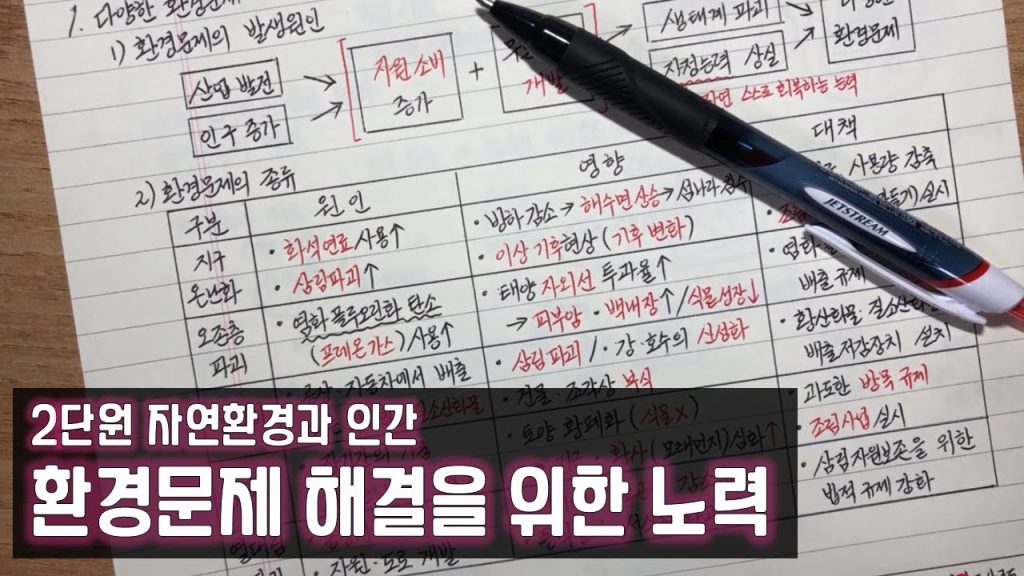 1. 다양한 환경문제
1) 환경문제의 발생원인
산업 발전
인구 증가
자원 소비
증가
+
개발
생태계 파괴
자정능력 상실
스스로 회복하는 능력
환경문제
2) 환경문제의 종류
구분 원인 영향 대책
지구
온난화
· 화석연료 사용↑
· 삼림파괴↑
· 빙하 감소 → 해수면 상승 → 섬나라 침수
· 이상 기후현상 (기후 변화)
사용량 감축
실시
오존층
파괴
· 염화 플루오린화 탄소
(프레온가스) 사용↑
· 태양 자외선 투과율↑
→ 피부암 · 백내장↑ / 식물성장↓
배출 규제
자동차에서 배출
· 삼림 파괴 / · 강 · 호수의 산성화
· 건물 · 조각상 부식
· 황산화물 · 질소산화
배출저감장치 설치
· 토양 황폐화 (식물X)
황사 (모래먼지) 심화↑
· 과도한 방목 규제
· 조림사업 실시
· 자원 · 도로 개발
· 삼림자원보존을 위한
법적 규제 강화
JETSTREAM
2단원 자연환경과 인간
환경문제 해결을 위한 노력